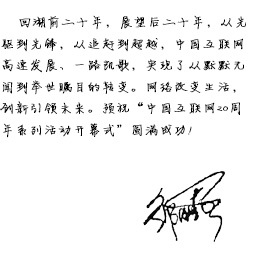 回溯前二十年，展望后二十年，从先
驱到先锋，从追赶到超越，中国互联网
高速发展、一路凯歌，实现了从默默无
闻到举世瞩目的转变。网络改变生活，
创新引领未来。预祝“中国互联网20周
年系列活动开幕式”圆满成功！